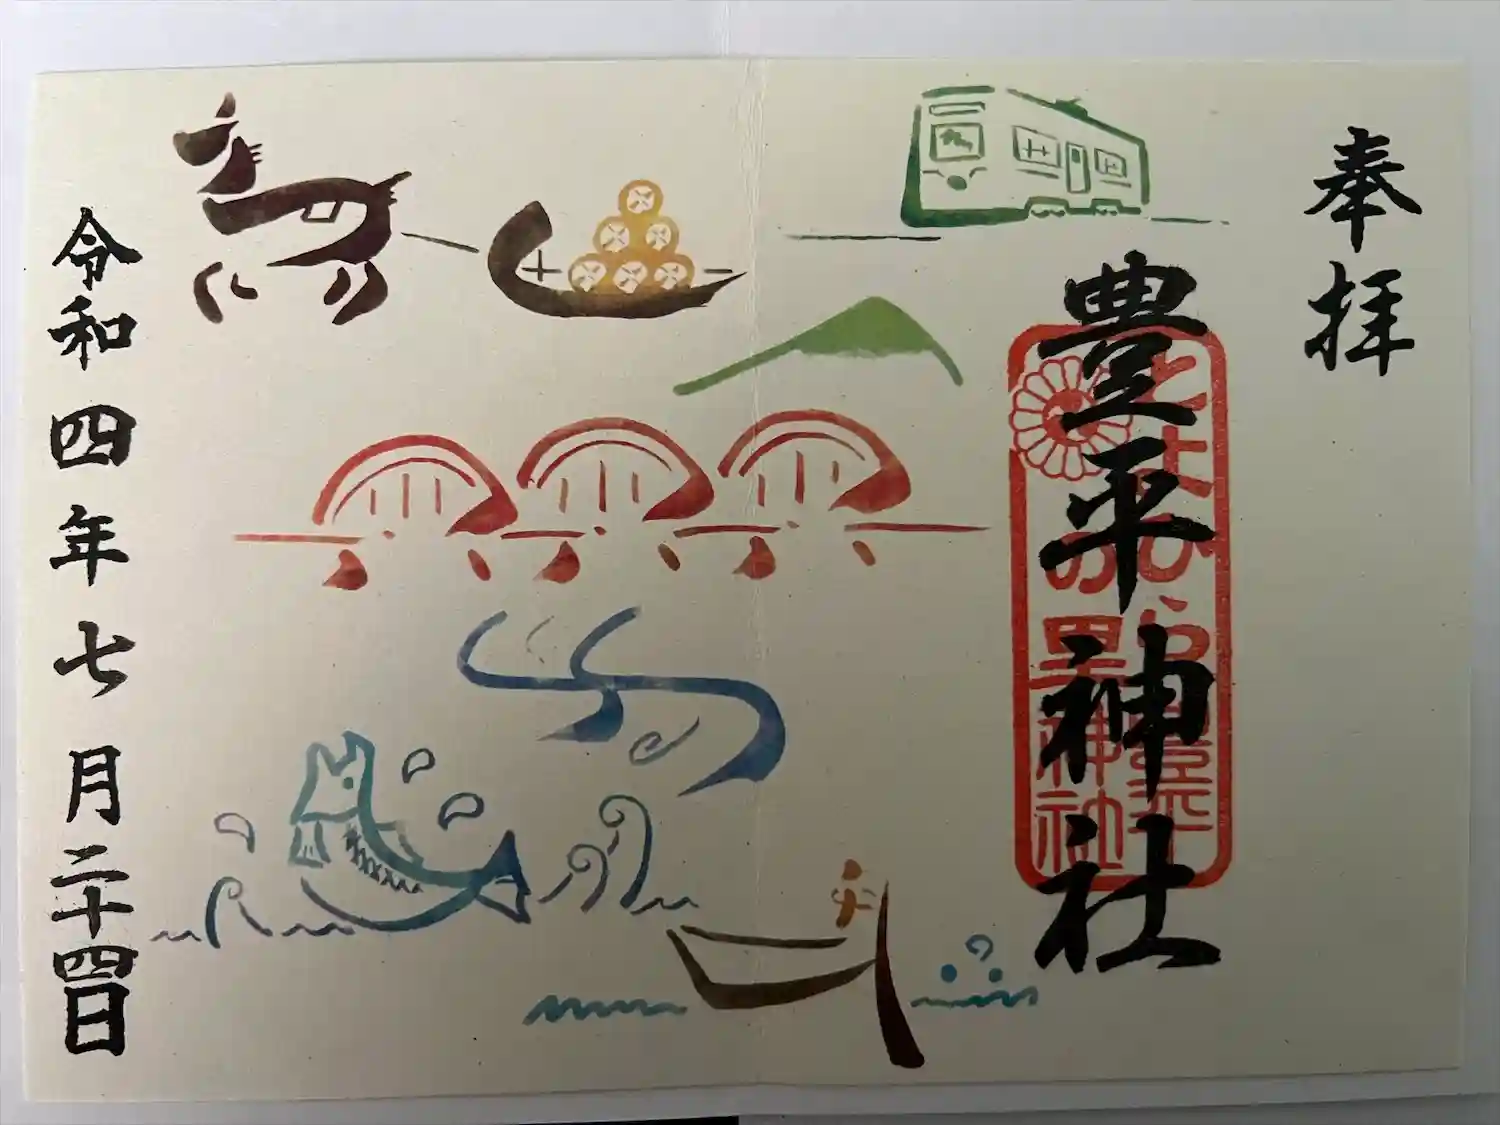 奉拝
豊平神社
令和四年七月二十四日